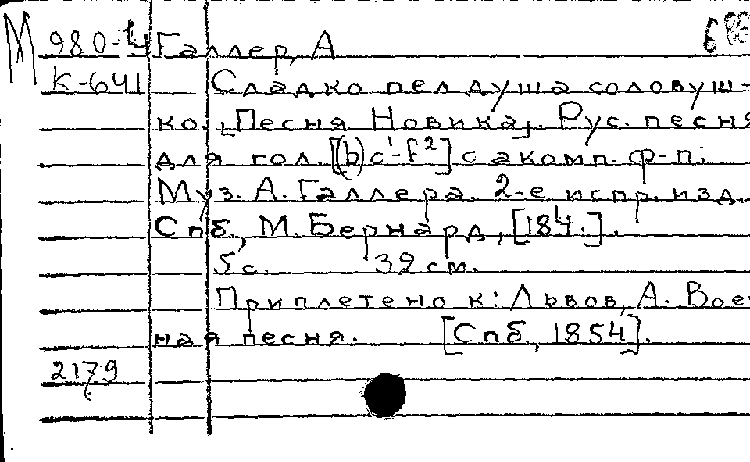 М 980-4 Галлер, А
К-641 Сладко пел душа соловуш-
ко. [Песня Новика]. Рус. песня
для гол. [(b)c'-f²] с акомп. ф-п.
Муз. А. Галлера. 2-е испр. изд.
Спб, М. Бернард, [184.].
5 с. 32 см.
Приплетено к: Львов, А. Воен
ная песня. [Спб, 1854].
2179